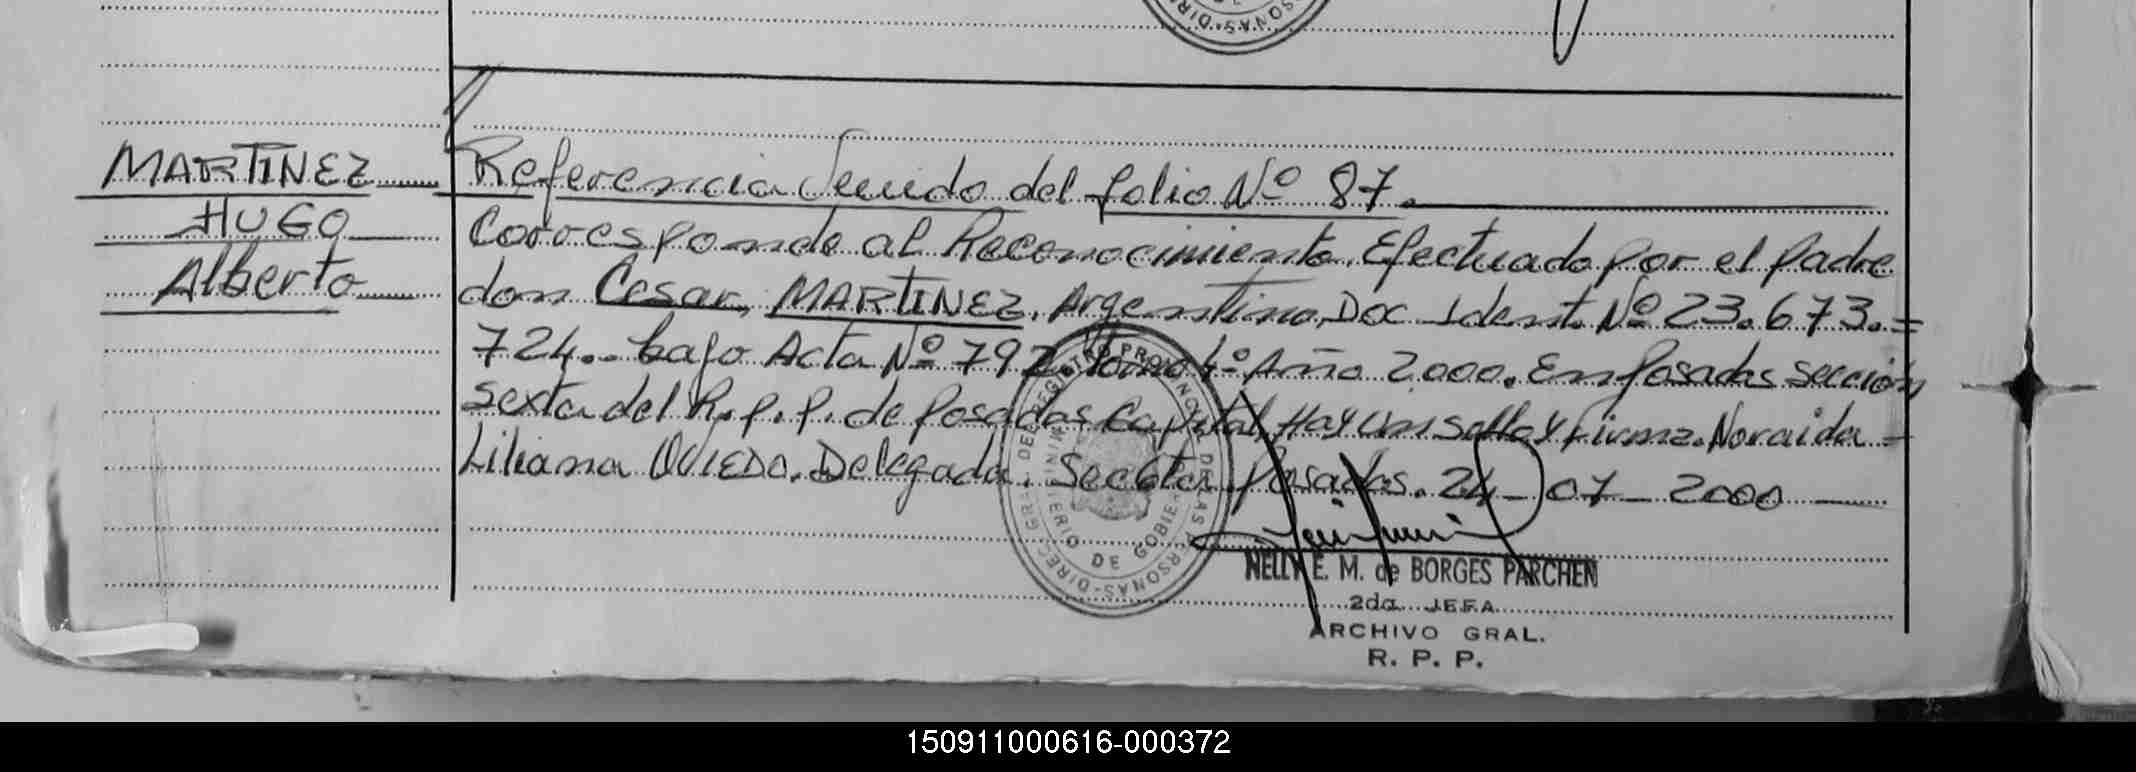 MARTINEZ
HUGO
Alberto
Referencia Seuudo del folio Nº 87.
Corresponde al Reconocimiento. Efectuado por el Padre
don Cesar, MARTINEZ, Argentino, Doc Ident. Nº 23.673.=
724.- bajo Acta Nº 792. tomo 4º Año 2000. En Posadas sección
sexta del R.P.P. de Posadas Capital. Hay un sello y Firma. Noraida =
Liliana OVIEDO. Delegada. Posadas. 24-07-2000
NELLY E. M. de BORGES PARCHEN
2da. JEFA
ARCHIVO GRAL.
R. P. P.
REGISTRO PROVINCIAL DE LAS PERSONAS-DIREC. GRAL. DEL
MINISTERIO DE GOBIE
150911000616-000372